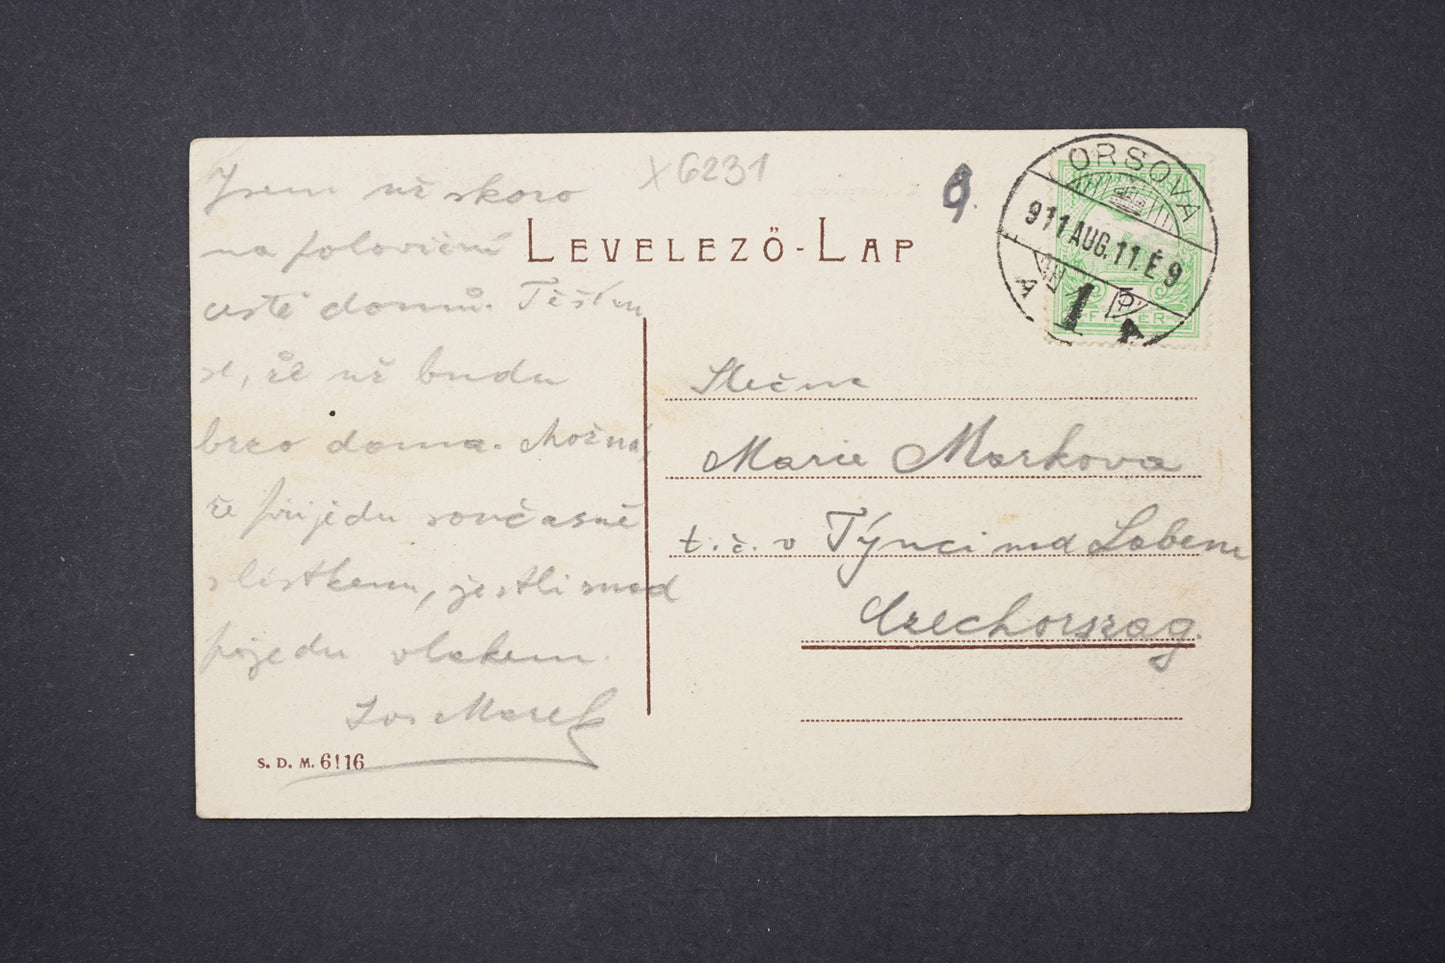 X 6231
Jsem už skoro
na poloviční
cestě domů. Těším
se, že už budu
brzo doma. Možná,
že přijedu současně
s lístkem, jestli snad
pojedu vlakem.
Jos Marek
S. D. M. 6116
LEVELEZŐ-LAP
9.
ORSOVA
911 AUG. 11. É 9
A
1
FILLER
Slečna
Marie Markova
t. č. v Týnci nad Labem
Czechorszag.